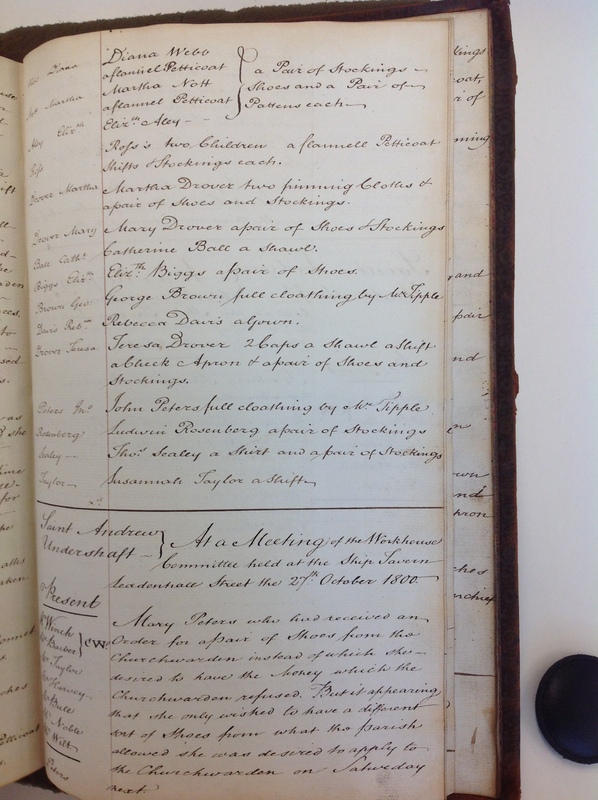 Diana Webb
a flannel Petticoat
Martha Nott
a flannel Petticoat
Eliz.th Aley - -
a Pair of Stockings
Shoes and a Pair of
Pattens each
Ross's two Children a flannell Petticoat
Shifts & Stockings each.
Drover Martha Martha Drover two pinning Cloths &
a pair of Shoes and Stockings.
Drover Mary Mary Drover a pair of Shoes & Stockings
Ball Cath.e Catherine Ball a Shawl.
Biggs Eliz.th Eliz.th Biggs a pair of Shoes.
Brown Geo. George Brown full cloathing by Mr Tipple
Davis Reb.a Rebecca Davis a Gown.
Drover Teresa Teresa Drover 2 Caps a Shawl a Shift
a Check Apron & a pair of Shoes and
Stockings.
Peters Jn.o John Peters full cloathing by Mr Tipple
Rosenberg Ludwin Rosenberg a pair of Stockings
Sealey Tho.s Sealey a Shirt and a pair of Stockings
Taylor Susannah Taylor a Shift
Saint Andrew
Undershaft
At a Meeting of the Workhouse
Committee held at the Ship Tavern
Leadenhall Street the 27th October 1800
Present
Mary Peters who had received an
Order for a pair of Shoes from the
Churchwarden instead of which she
desired to have the Money which the
Churchwarden refused. But it appearing
that she only wished to have a different
sort of Shoes from what the Parish
allowed she was desired to apply to
the Churchwarden on Saturday
next.
Winch
Barber
CW
Taylor
Harvey
Bull
Noble
Witt
Peters